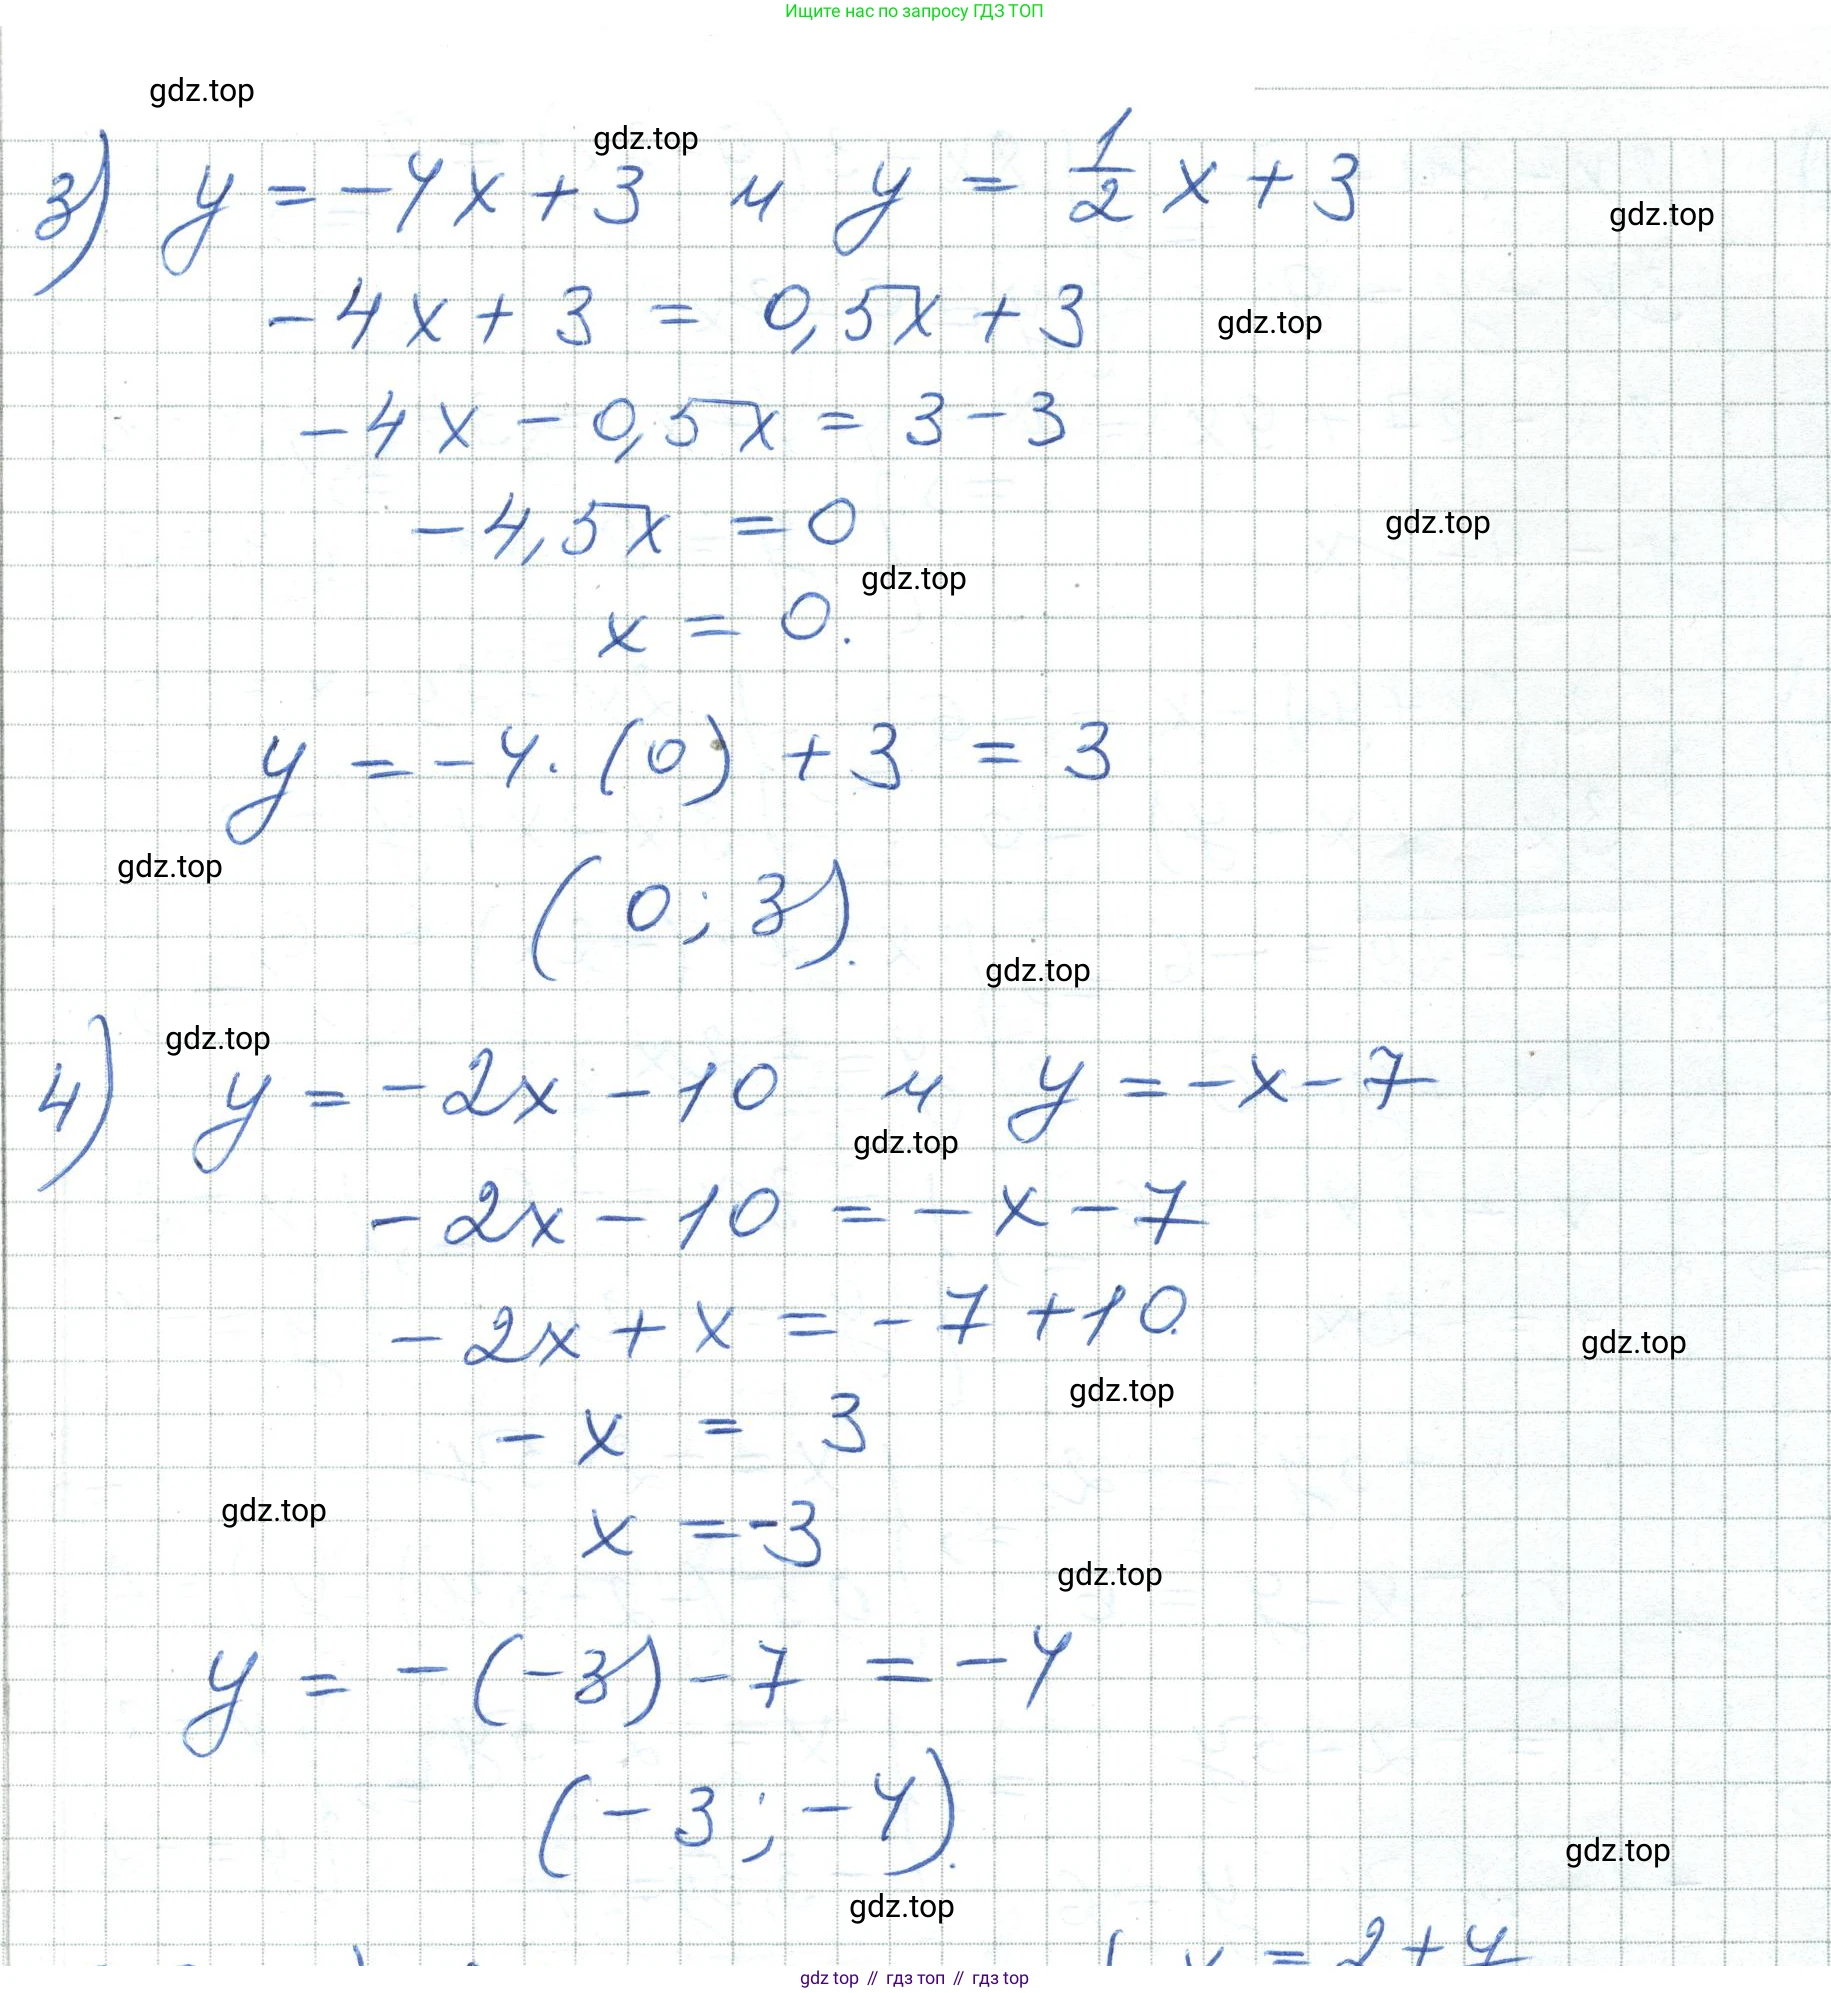 Ищите нас по запросу ГДЗ ТОП
gdz.top
gdz.top
3) y = -4x + 3 и y = 1/2 x + 3
gdz.top
-4x + 3 = 0,5x + 3
gdz.top
-4x - 0,5x = 3 - 3
-4,5x = 0
gdz.top
gdz.top
x = 0.
y = -4 · (0) + 3 = 3
gdz.top
(0; 3).
gdz.top
gdz.top
4) y = -2x - 10 и y = -x - 7
gdz.top
-2x - 10 = -x - 7
-2x + x = -7 + 10.
gdz.top
gdz.top
-x = 3
gdz.top
x = -3
gdz.top
y = -(-3) - 7 = -4
(-3; -4).
gdz.top
gdz.top
gdz top // гдз топ // гдз top